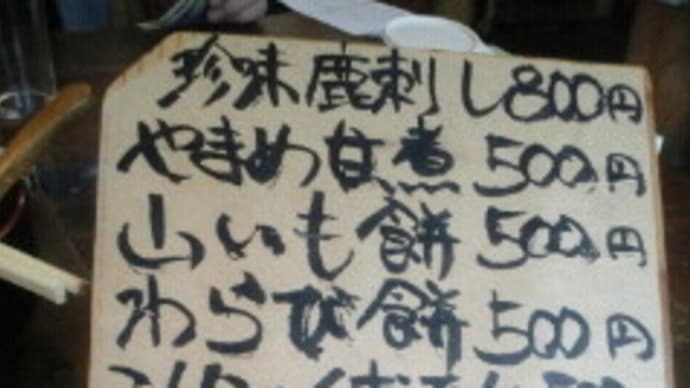 珍味鹿刺し800円
やまめ甘煮500円
山いも餅500円
わらび餅500円